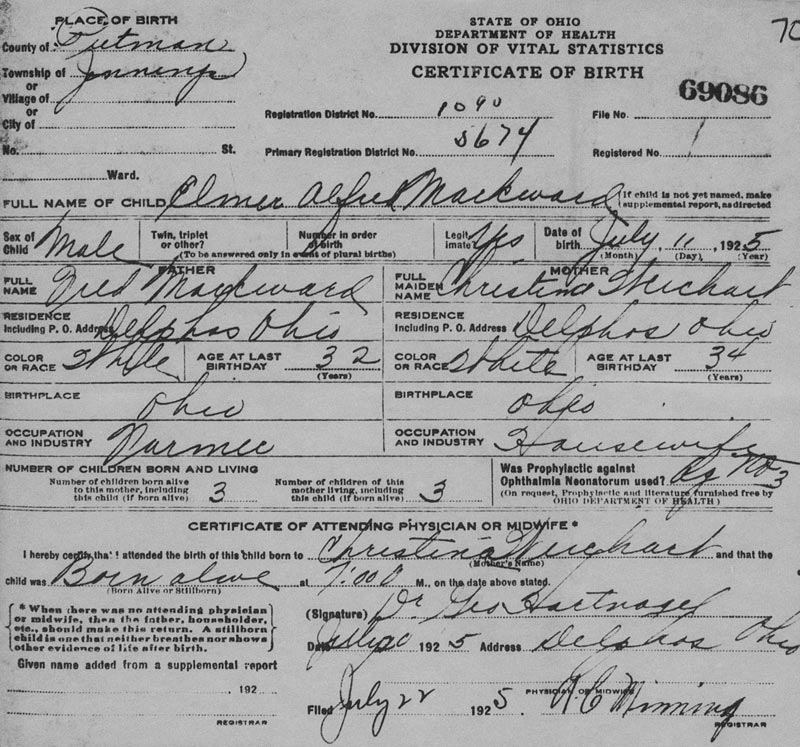 PLACE OF BIRTH
STATE OF OHIO
DEPARTMENT OF HEALTH
DIVISION OF VITAL STATISTICS
CERTIFICATE OF BIRTH
70
69086
County of Putman
Township of Jennings
or
Village of
or
City of
No. St.
Ward.
Registration District No. 1090 File No.
Primary Registration District No. 5674 Registered No. 1
FULL NAME OF CHILD Elmer Alfred Markward (If child is not yet named, make supplemental report, as directed
Sex of Child Male Twin, triplet or other? Number in order of birth (To be answered only in event of plural births) Legitimate? Yes Date of birth July 11, 1925 (Month) (Day) (Year)
FATHER MOTHER
FULL NAME Fred Markward FULL MAIDEN NAME Christina Weichart
RESIDENCE Including P. O. Address Delphos Ohio RESIDENCE Including P. O. Address Delphos Ohio
COLOR OR RACE White AGE AT LAST BIRTHDAY 32 (Years) COLOR OR RACE White AGE AT LAST BIRTHDAY 34 (Years)
BIRTHPLACE Ohio BIRTHPLACE Ohio
OCCUPATION AND INDUSTRY Farmer OCCUPATION AND INDUSTRY Housewife
NUMBER OF CHILDREN BORN AND LIVING
Number of children born alive to this mother, including this child (if born alive) 3 Number of children of this mother living, including this child (if born alive) 3
Was Prophylactic against Ophthalmia Neonatorum used? Ag NO3
(On request, Prophylactic and literature furnished free by OHIO DEPARTMENT OF HEALTH)
CERTIFICATE OF ATTENDING PHYSICIAN OR MIDWIFE*
I hereby certify that I attended the birth of this child born to Christina Weichart and that the
(Mother's Name)
child was Born alive at 7:00 M., on the date above stated.
(Born Alive or Stillborn)
* When there was no attending physician
or midwife, then the father, householder,
etc., should make this return. A stillborn
child is one that neither breathes nor shows
other evidence of life after birth.
(Signature) Dr Geo Hartnagel
PHYSICIAN OR MIDWIFE
Date July 20 1925 Address Delphos Ohio
Given name added from a supplemental report
, 192
REGISTRAR
Filed July 22 1925
REGISTRAR